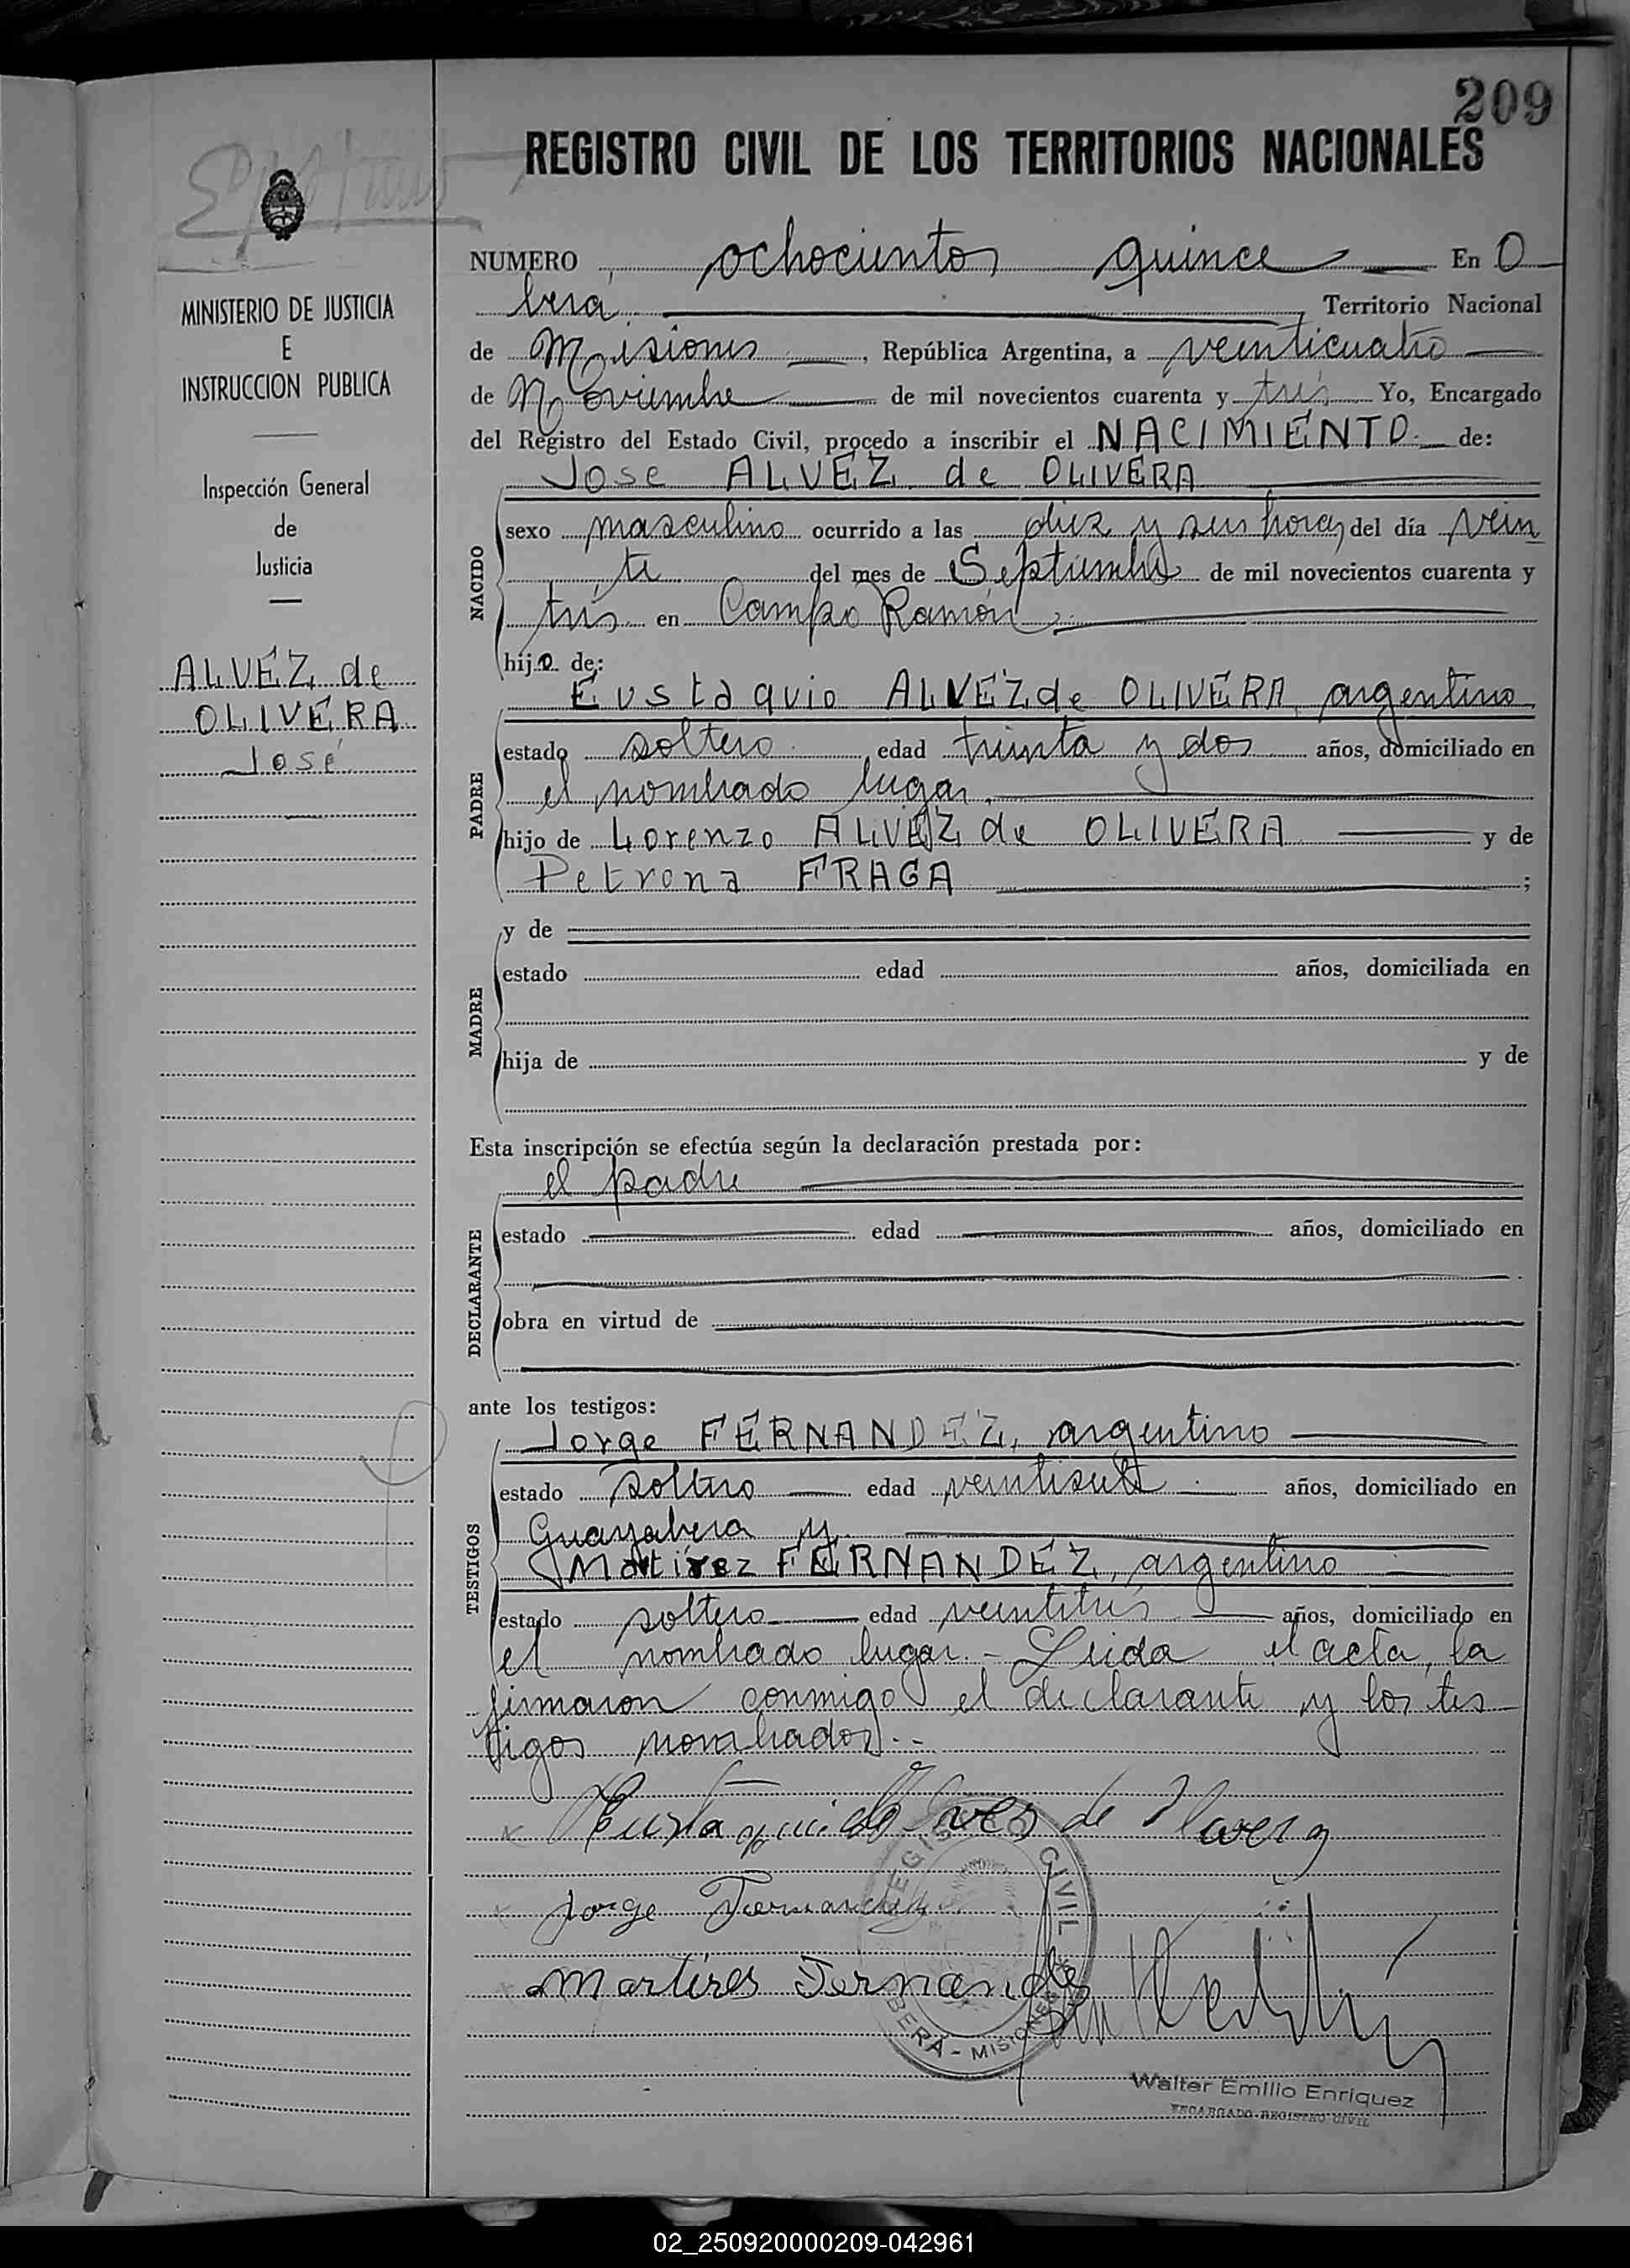 209
REGISTRO CIVIL DE LOS TERRITORIOS NACIONALES
MINISTERIO DE JUSTICIA
E
INSTRUCCION PUBLICA
Inspección General
de
Justicia
ALVEZ de
OLIVERA
José
NUMERO ochocientos quince En O
berá. Territorio Nacional
de Misiones, República Argentina, a veinticuatro
de Noviembre de mil novecientos cuarenta y tres Yo, Encargado
del Registro del Estado Civil, procedo a inscribir el NACIMIENTO. de:
Jose ALVEZ de OLIVERA
NACIDO
sexo masculino ocurrido a las diez y seis horas del día vein
te del mes de Septiembre de mil novecientos cuarenta y
tres en Campo Ramón
hijo de:
Eustaquio ALVEZ de OLIVERA, argentino
PADRE
estado soltero edad treinta y dos años, domiciliado en
el nombrado lugar.
hijo de Lorenzo ALVEZ de OLIVERA y de
Petrona FRAGA ;
MADRE
y de
estado edad años, domiciliada en
hija de y de
Esta inscripción se efectúa según la declaración prestada por:
el padre
DECLARANTE
estado edad años, domiciliado en
obra en virtud de
ante los testigos:
Jorge FERNANDEZ, argentino
TESTIGOS
estado soltero edad veintisiete años, domiciliado en
Guayabera y
Martirez FERNANDEZ, argentino
estado soltero edad veintitres años, domiciliado en
el nombrado lugar.- Leida el acta, la
firmaron conmigo el declarante y los tes
tigos nombrados.-
x Eustaquio Alves de Olivera
x Jorge Fernandez
x Martires Fernandes
REGISTRO CIVIL
OBERÁ - MISIONES
Walter Emilio Enriquez
ENCARGADO REGISTRO CIVIL
02_250920000209-042961